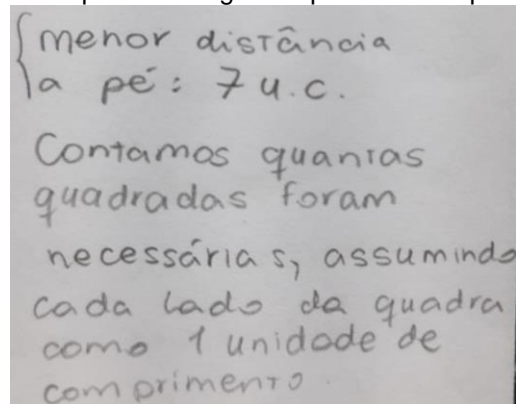 menor distância
a pé: 7 u.c.
Contamos quantas
quadradas foram
necessárias, assumindo
cada lado da quadra
como 1 unidade de
comprimento.